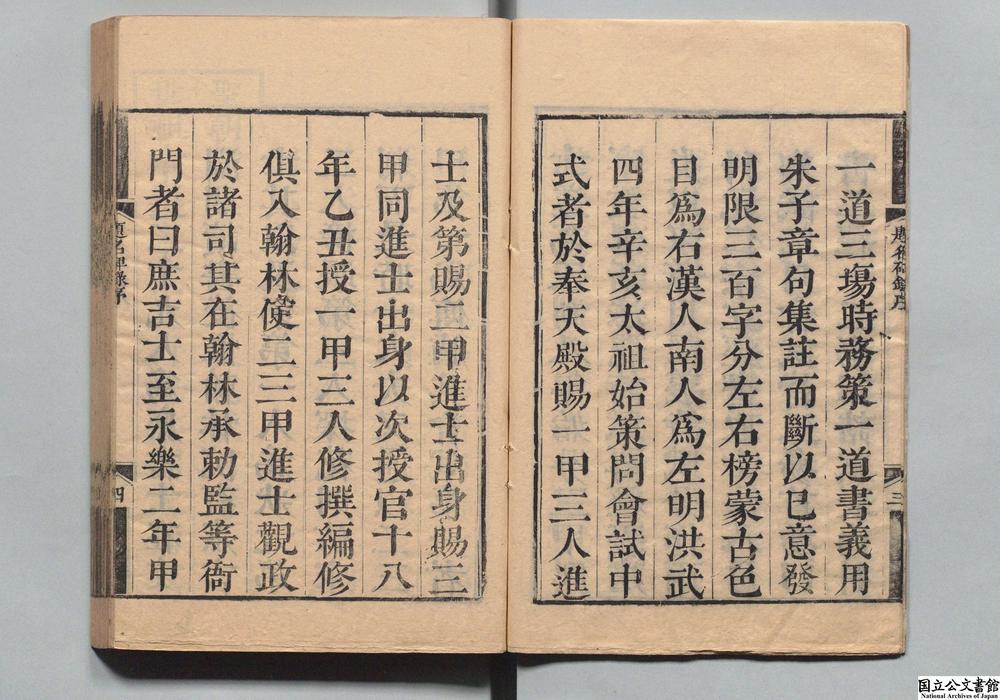 一道三塲時務策一道書義用
朱子章句集註而斷以己意發
明限三百字分左右榜蒙古色
目爲右漢人南人爲左明洪武
四年辛亥太祖始策問會試中
式者於奉天殿賜一甲三人進
士及第賜二甲進士出身賜三
甲同進士出身以次授官十八
年乙丑授一甲三人修撰編修
俱入翰林使二三甲進士觀政
於諸司其在翰林承勅監等衙
門者曰庶吉士至永樂二年甲
題名碑錄序
三
題名碑錄序
四
国立公文書館
National Archives of Japan